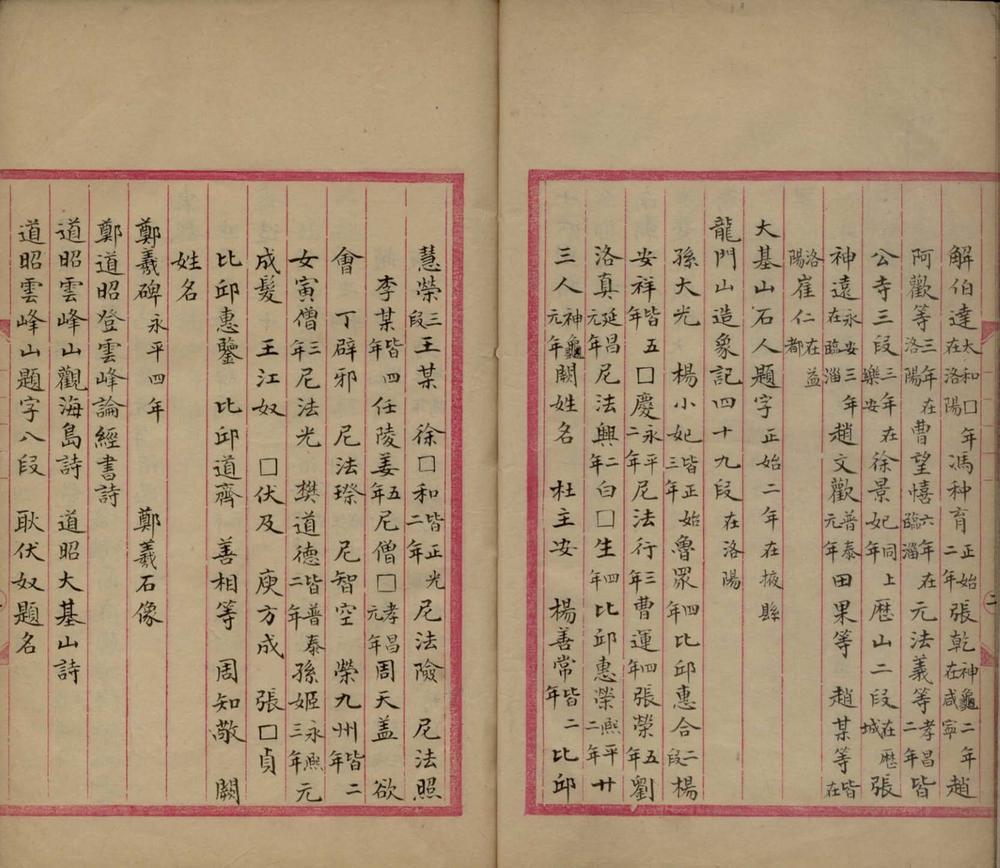 解伯達太和□年在洛陽馮种育正始二年張乾神龜二年在咸寧趙
阿歡等三年在洛陽曹望憘六年在臨淄元法義等孝昌二年皆
公寺三段三年在樂安徐景妃同上年歷山二段在歷城張
神遠永安三年在臨淄趙文歡普泰元年田果等　趙某等皆在
洛陽崔仁在益都
大基山石人題字正始二年在掖縣
龍門山造象記四十九段在洛陽
孫大光　楊小妃皆正始三年魯眾四年比邱惠合二段楊
安祥皆五年□慶永平二年尼法行三年曹運四年張榮五年劉
洛真延昌元年尼法興二年白□生四年比邱惠榮熙平二年廿
三人神龜元年闕姓名　杜主安　楊善常皆二年比邱
慧榮三段王某　徐□和皆正光二年尼法險　尼法照
李某皆四年任陵姜五年尼僧□孝昌元年周天盖　欲
會　丁辟邪　尼法㻮　尼智空　榮九州皆二年
女寅僧三年尼法光　樊道德皆普泰二年孫姬永熙三年元
成髮　王江奴　□伏及　庚方成　張□貞
比邱惠鑒　比邱道齊　善相等　周知敵　闕
姓名
鄭羲碑永平四年　鄭羲石像
鄭道昭登雲峰論經書詩
道昭雲峰山觀海島詩　道昭大基山詩
道昭雲峰山題字八段　耿伏奴題名
二